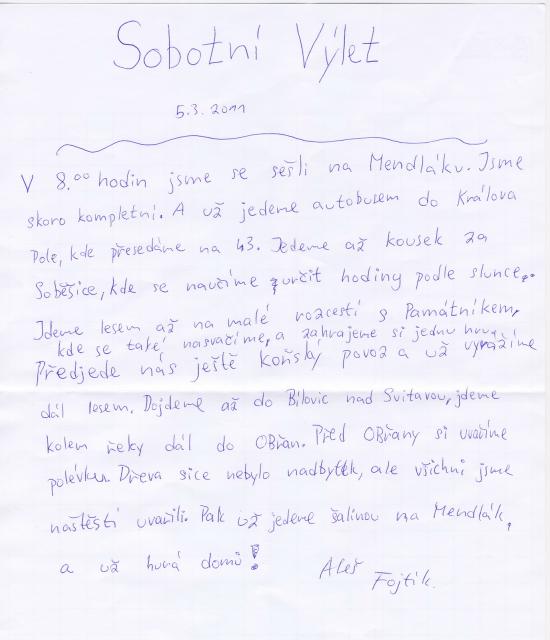 Sobotní Výlet
5.3.2011
V 8.00 hodin jsme se sešli na Mendláku. Jsme
skoro kompletní. A už jedeme autobusem do Králova
Pole, kde přesedáme na 43. Jedeme až kousek za
Soběšice, kde se naučíme určit hodiny podle slunce.
Jdeme lesem až na malé rozcestí s Památníkem,
kde se také nasvačíme, a zahrajeme si jednu hru.
Předjede nás ještě koňský povoz a už vyrážíme
dál lesem. Dojdeme až do Bílovic nad Svitavou, jdeme
kolem řeky dál do Obřan. Před Obřany si uvaříme
polévku. Dřeva sice nebylo nadbytek, ale všichni jsme
naštěstí uvařili. Pak už jedeme šalinou na Mendlák,
a už hurá domů!
Aleš
Fojtík.